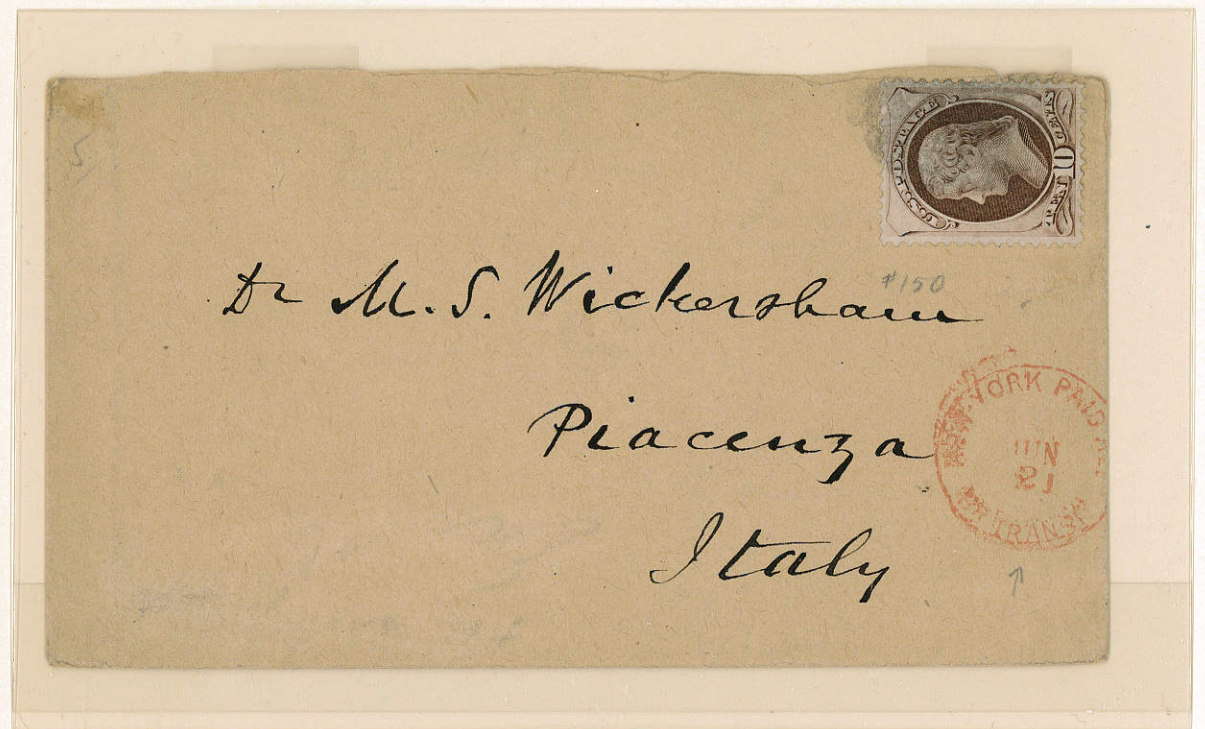 5
U.S. POSTAGE
10
#150
Dr M. S. Wickersham
Piacenza
Italy
NEW YORK PAID ALL
JUN
21
BR TRANSIT